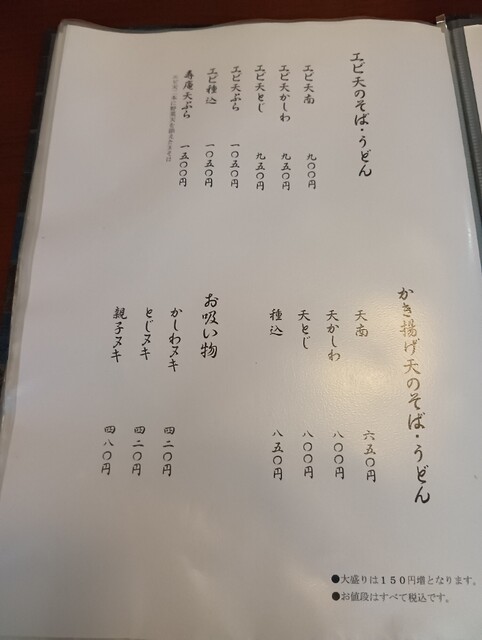 エビ天のそば・うどん
エビ天南 九〇〇円
エビ天かしわ 九五〇円
エビ天とじ 九五〇円
エビ天ぷら 一〇五〇円
エビ種込 一〇五〇円
寿庵天ぷら 一五〇〇円
かき揚げ天のそば・うどん
天南 六五〇円
天かしわ 八〇〇円
天とじ 八〇〇円
種込 八五〇円
お吸い物
かしわヌキ 四二〇円
とじヌキ 四二〇円
親子ヌキ 四八〇円
●大盛りは１５０円増となります。
●お値段はすべて税込です。